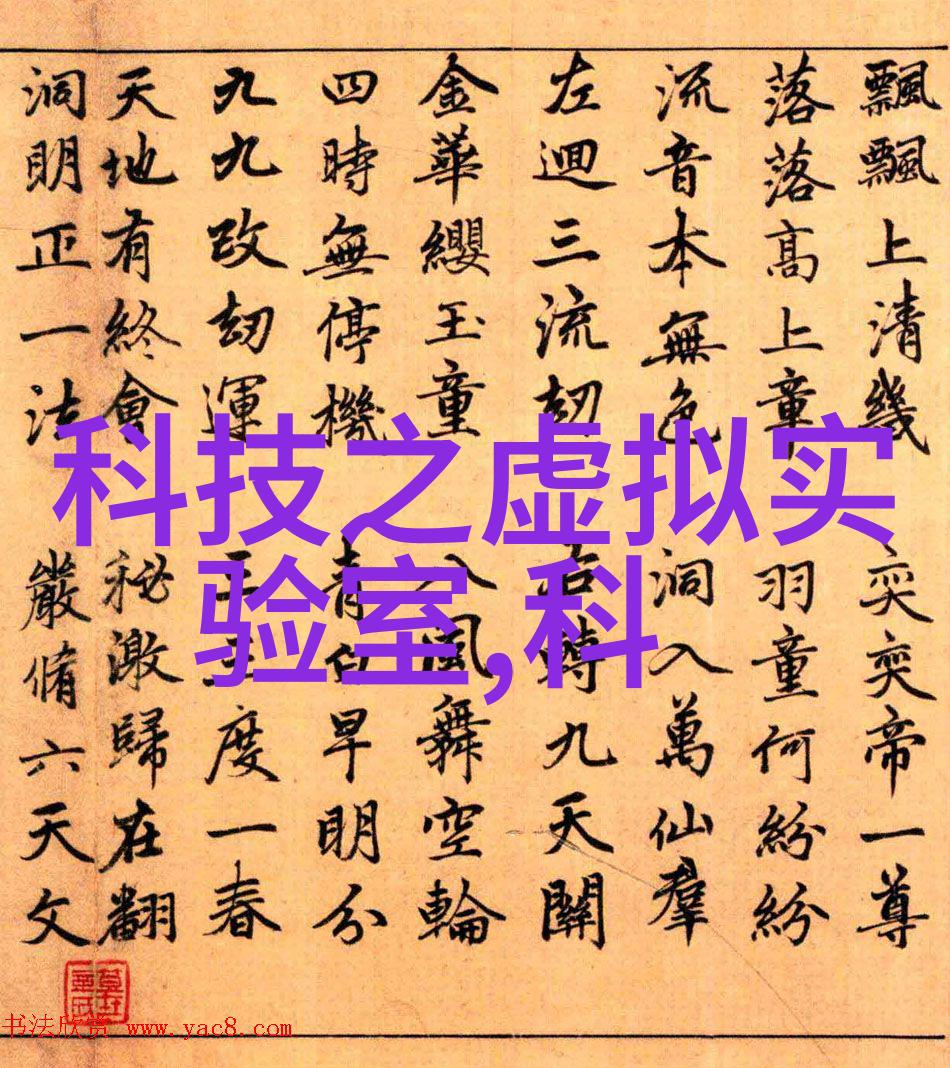 飄飄上清幾 奕奕帝一尊
落落高上童 羽童何紛紛
流音本無色 洞入萬仙羣
左迴三流劫 右轉九天關
金華纓玉童 八風舞空輪
四時無停機 青白早明分
九九改劫運 三三度一春
天地有終會 秘激歸在翻
洞明正一法 嚴脩六天文
科技之虚拟实
验室,科
书法欣赏 www.yac8.com